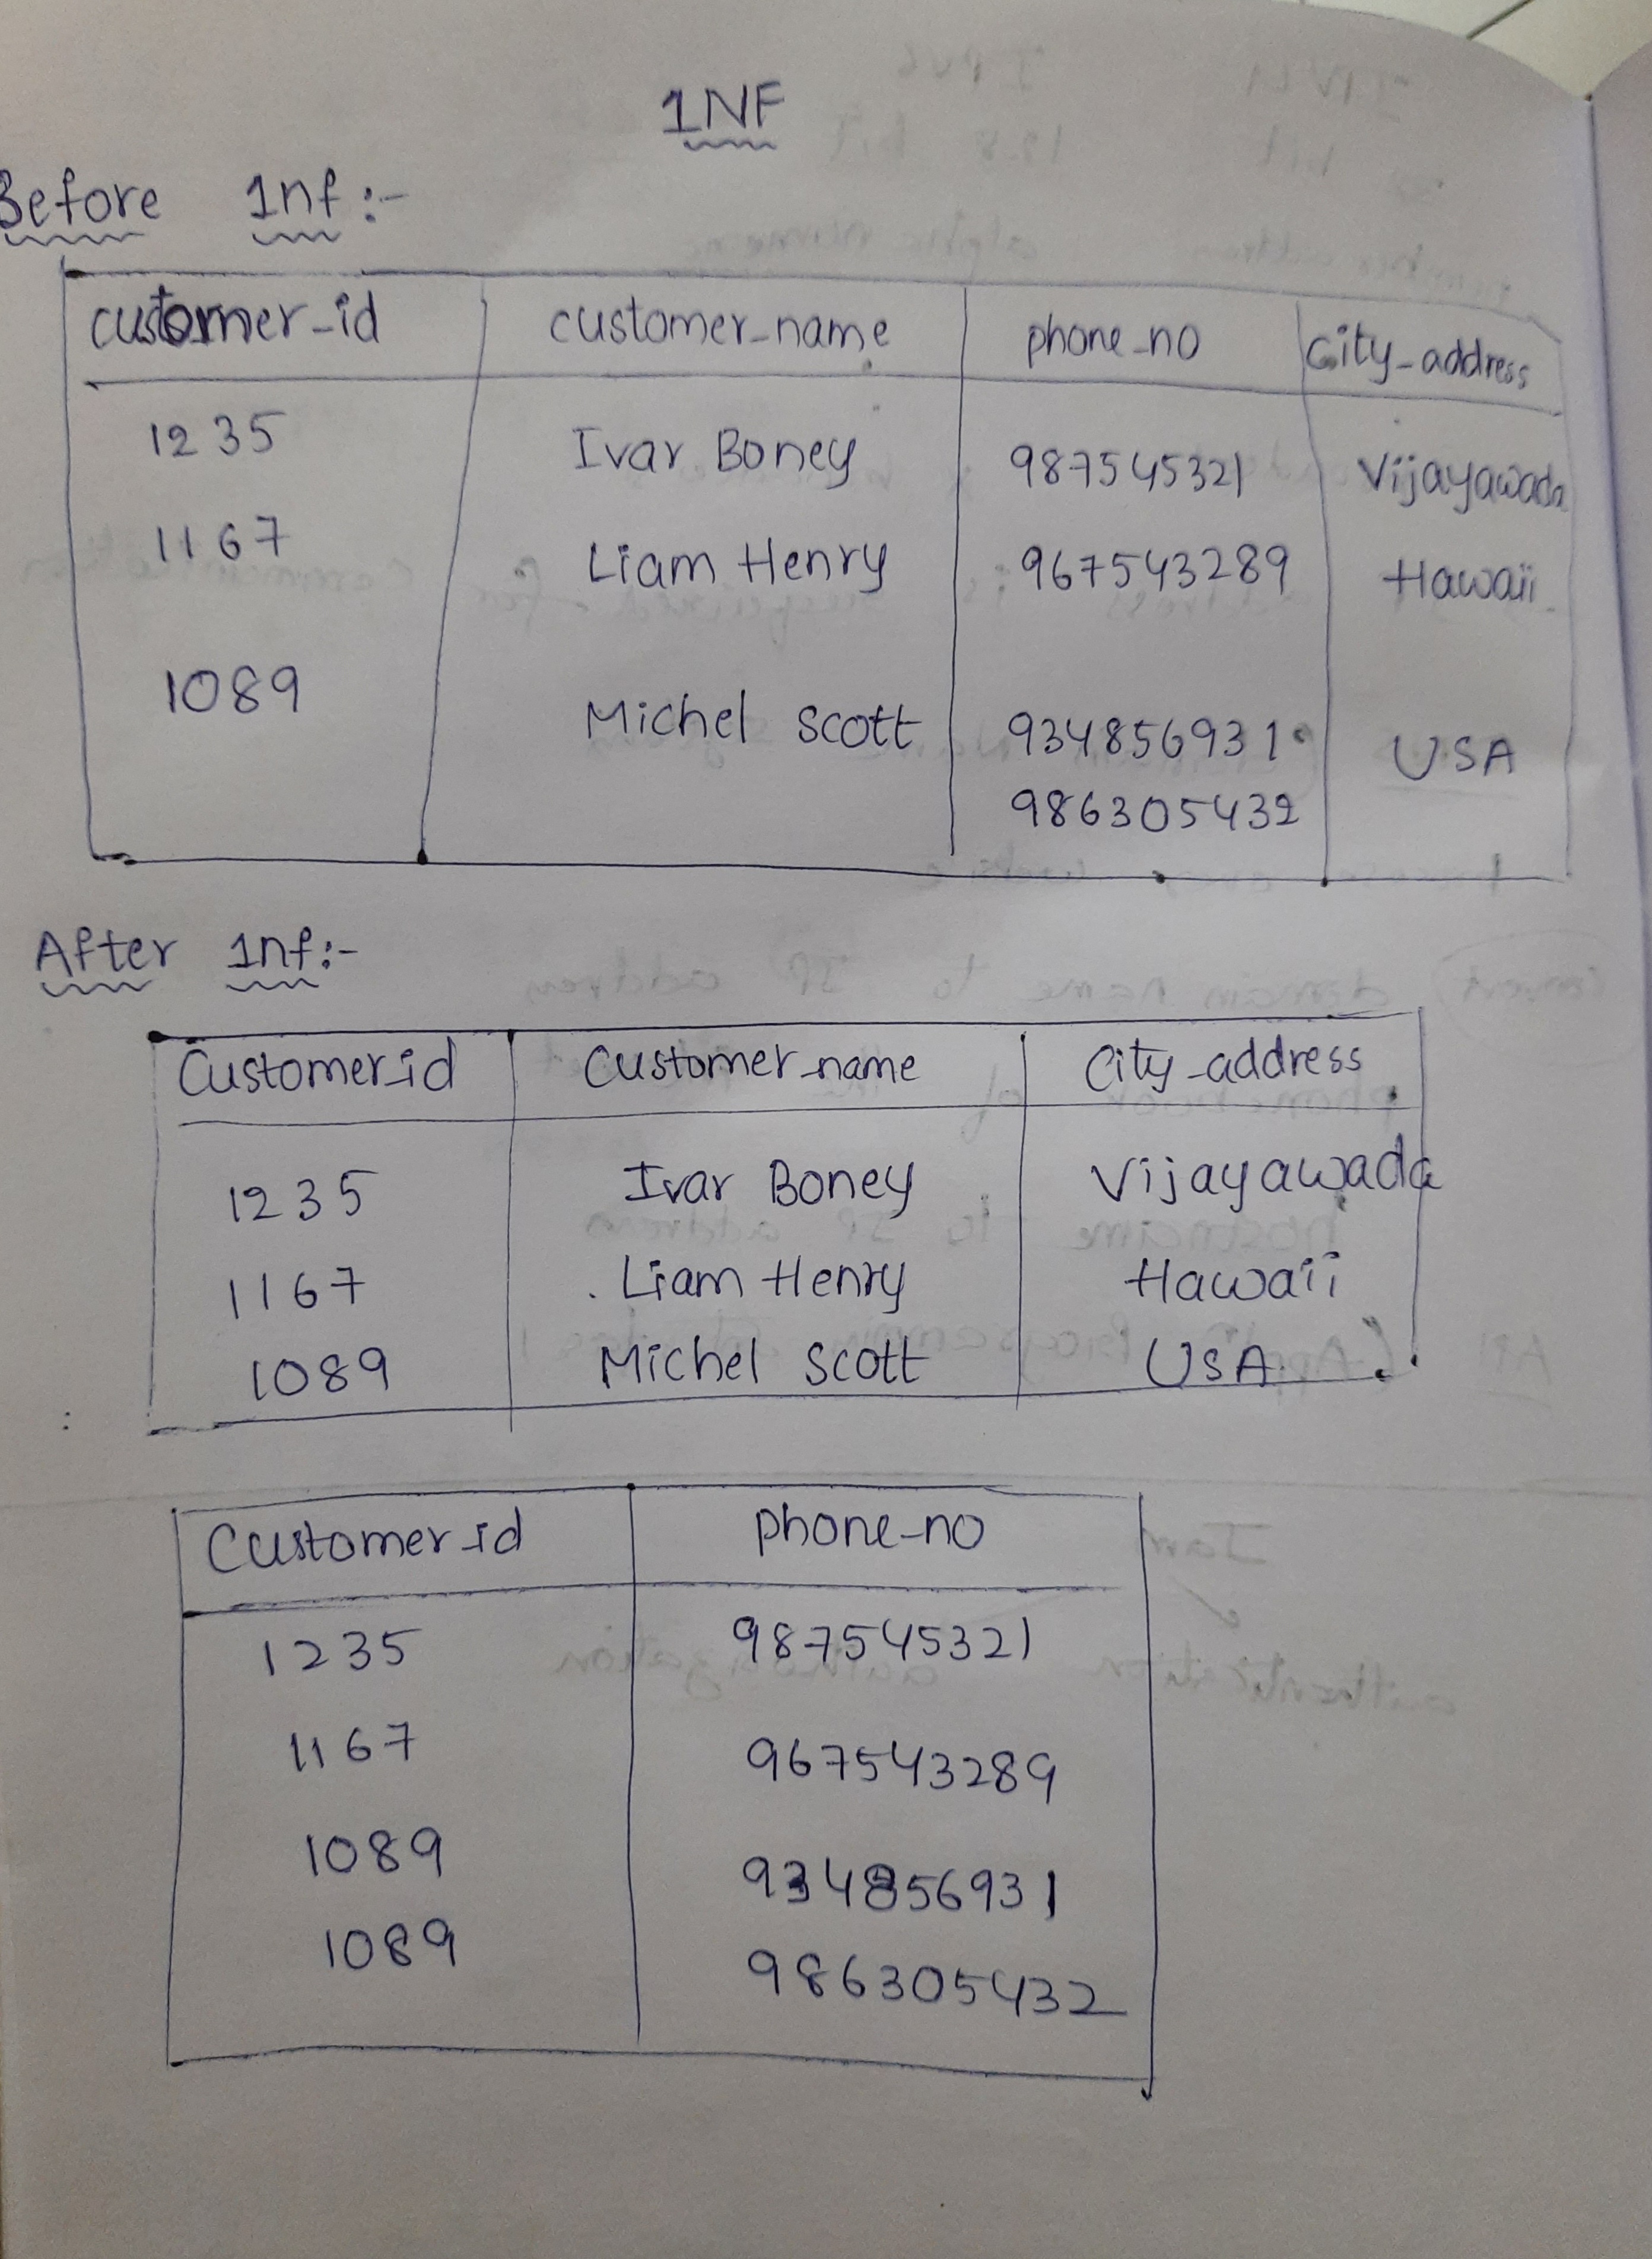 1NF
Before 1nf:-
customer_id customer_name phone_no City_address
1235 Ivar Boney 987545321 Vijayawada
1167 Liam Henry 967543289 Hawaii
1089 Michel Scott 934856931 USA
986305432
After 1nf:-
Customer_id Customer_name City_address
1235 Ivar Boney Vijayawada
1167 Liam Henry Hawaii
1089 Michel Scott USA
Customer_id phone_no
1235 987545321
1167 967543289
1089 934856931
1089 986305432